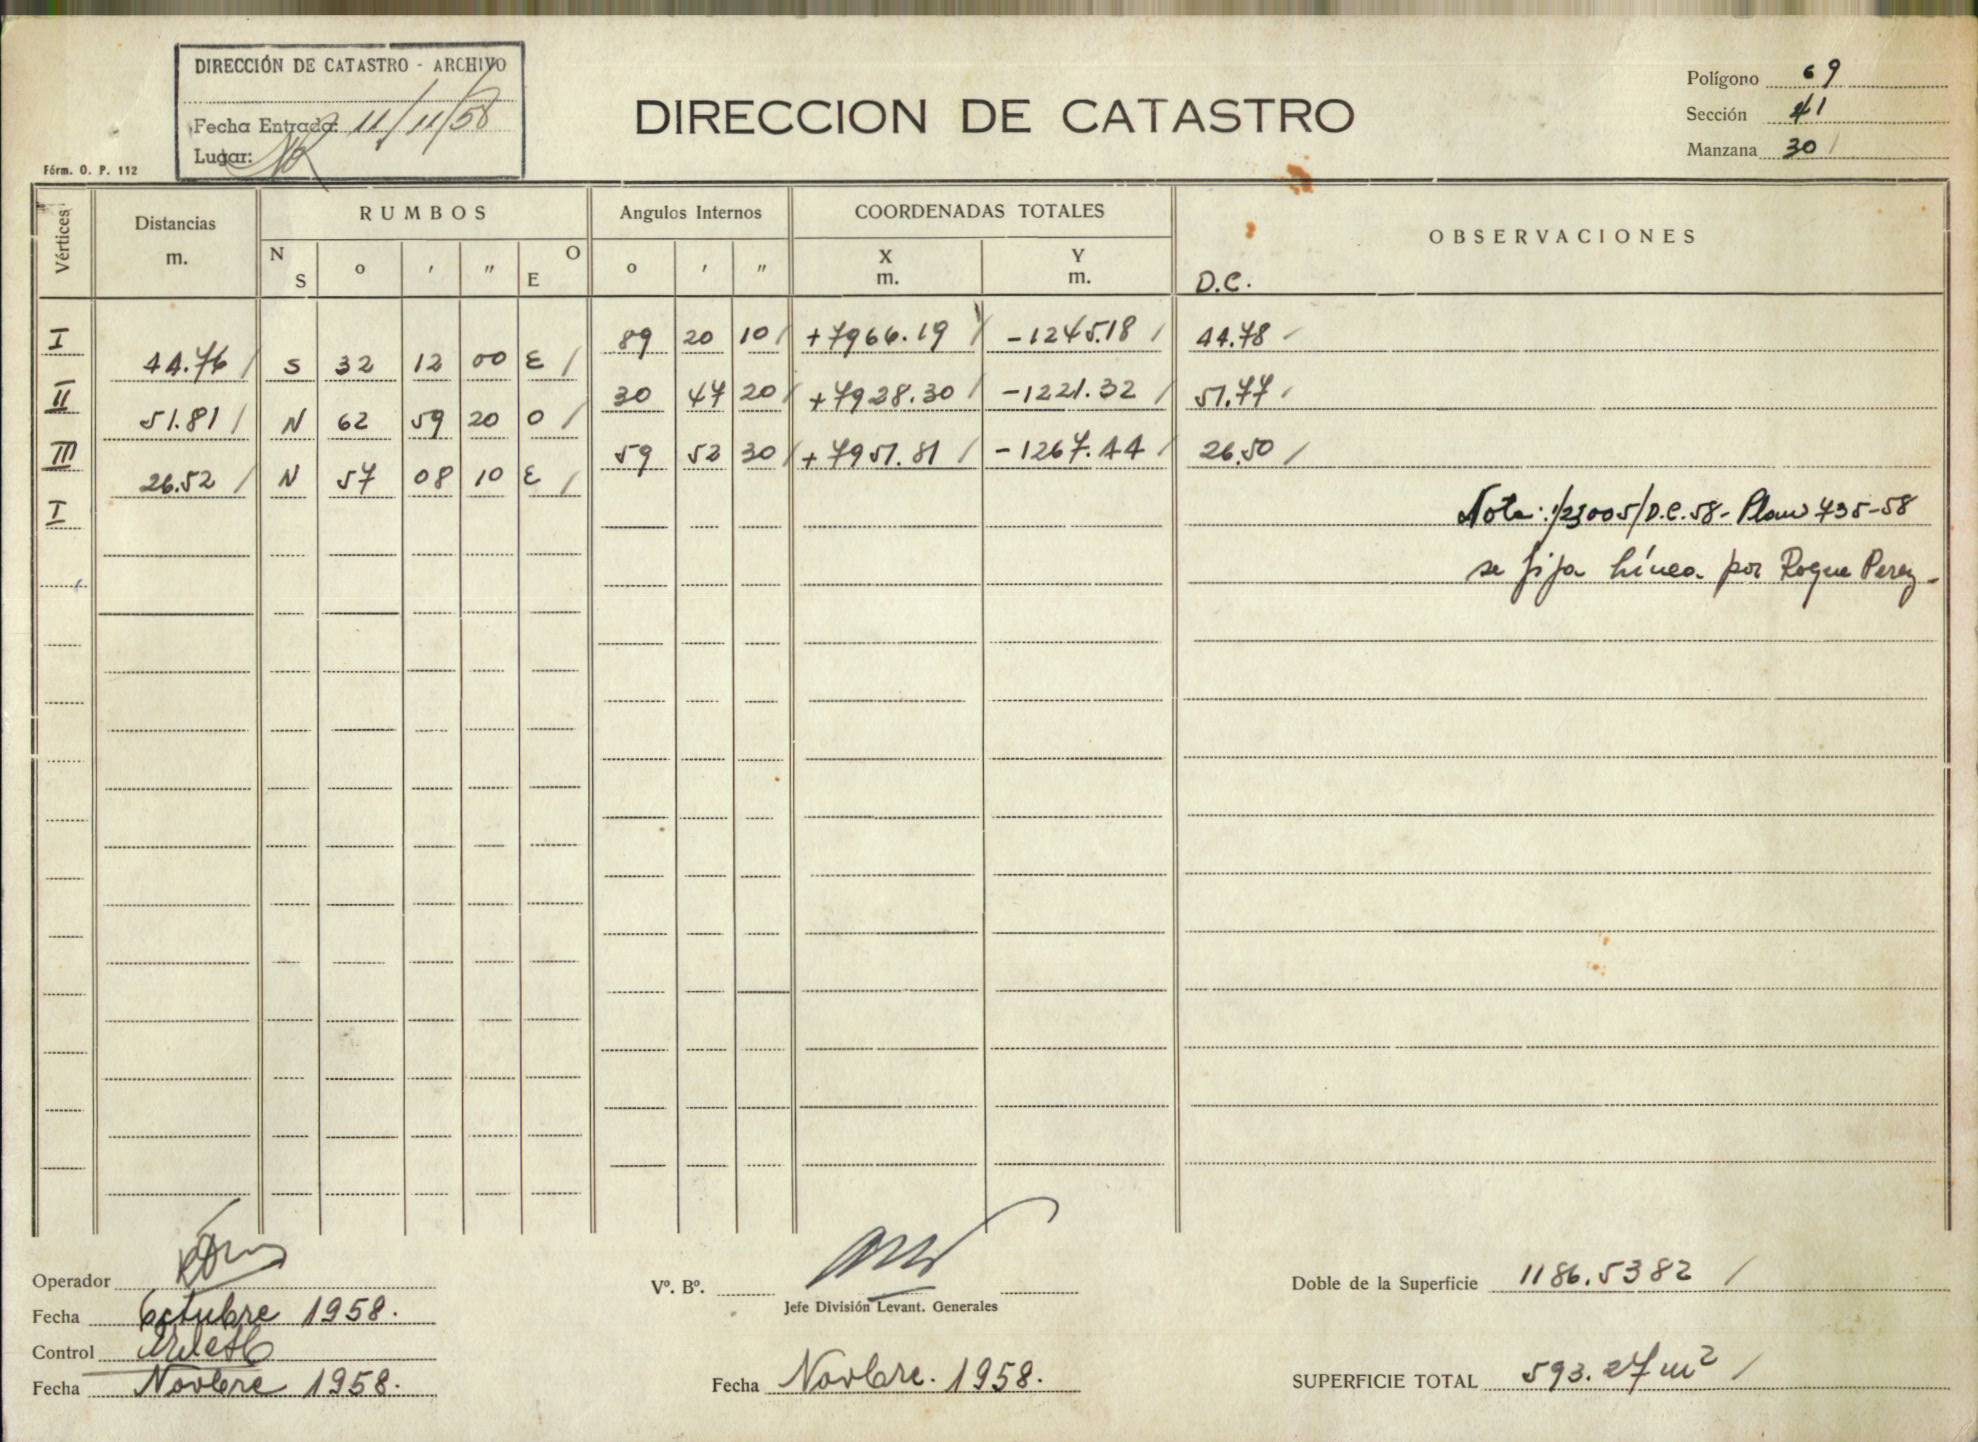 DIRECCIÓN DE CATASTRO - ARCHIVO
Fecha Entrada: 11/11/58
Lugar:
Fórm. O. P. 112
DIRECCION DE CATASTRO
Polígono 69
Sección 41
Manzana 30
Vértices Distancias m. RUMBOS Angulos Internos COORDENADAS TOTALES OBSERVACIONES
N S o ' " O E o ' " X m. Y m. D.C.
I 89 20 10 / +7966.19 / -1245.18 / 44.78
44.76 / S 32 12 00 E /
II 30 47 20 / +7928.30 / -1221.32 / 51.77
51.81 / N 62 59 20 O /
III 59 52 30 / +7951.81 / -1267.44 / 26.50 /
26.52 / N 57 08 10 E /
I
Nota: 1/23005/D.C.58- Plano 735-58
se fija línea por Roque Perez-
Operador
Fecha Octubre 1958.
Control
Fecha Novbre 1958.
Vº. Bº.
Jefe División Levant. Generales
Fecha Novbre. 1958.
Doble de la Superficie 1186.5382 /
SUPERFICIE TOTAL 593.27 m² /